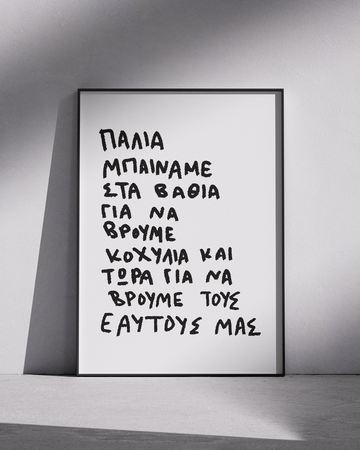 ΠΑΛΙΑ
ΜΠΑΙΝΑΜΕ
ΣΤΑ ΒΑΘΙΑ
ΓΙΑ ΝΑ
ΒΡΟΥΜΕ
ΚΟΧΥΛΙΑ ΚΑΙ
ΤΩΡΑ ΓΙΑ ΝΑ
ΒΡΟΥΜΕ ΤΟΥΣ
ΕΑΥΤΟΥΣ ΜΑΣ